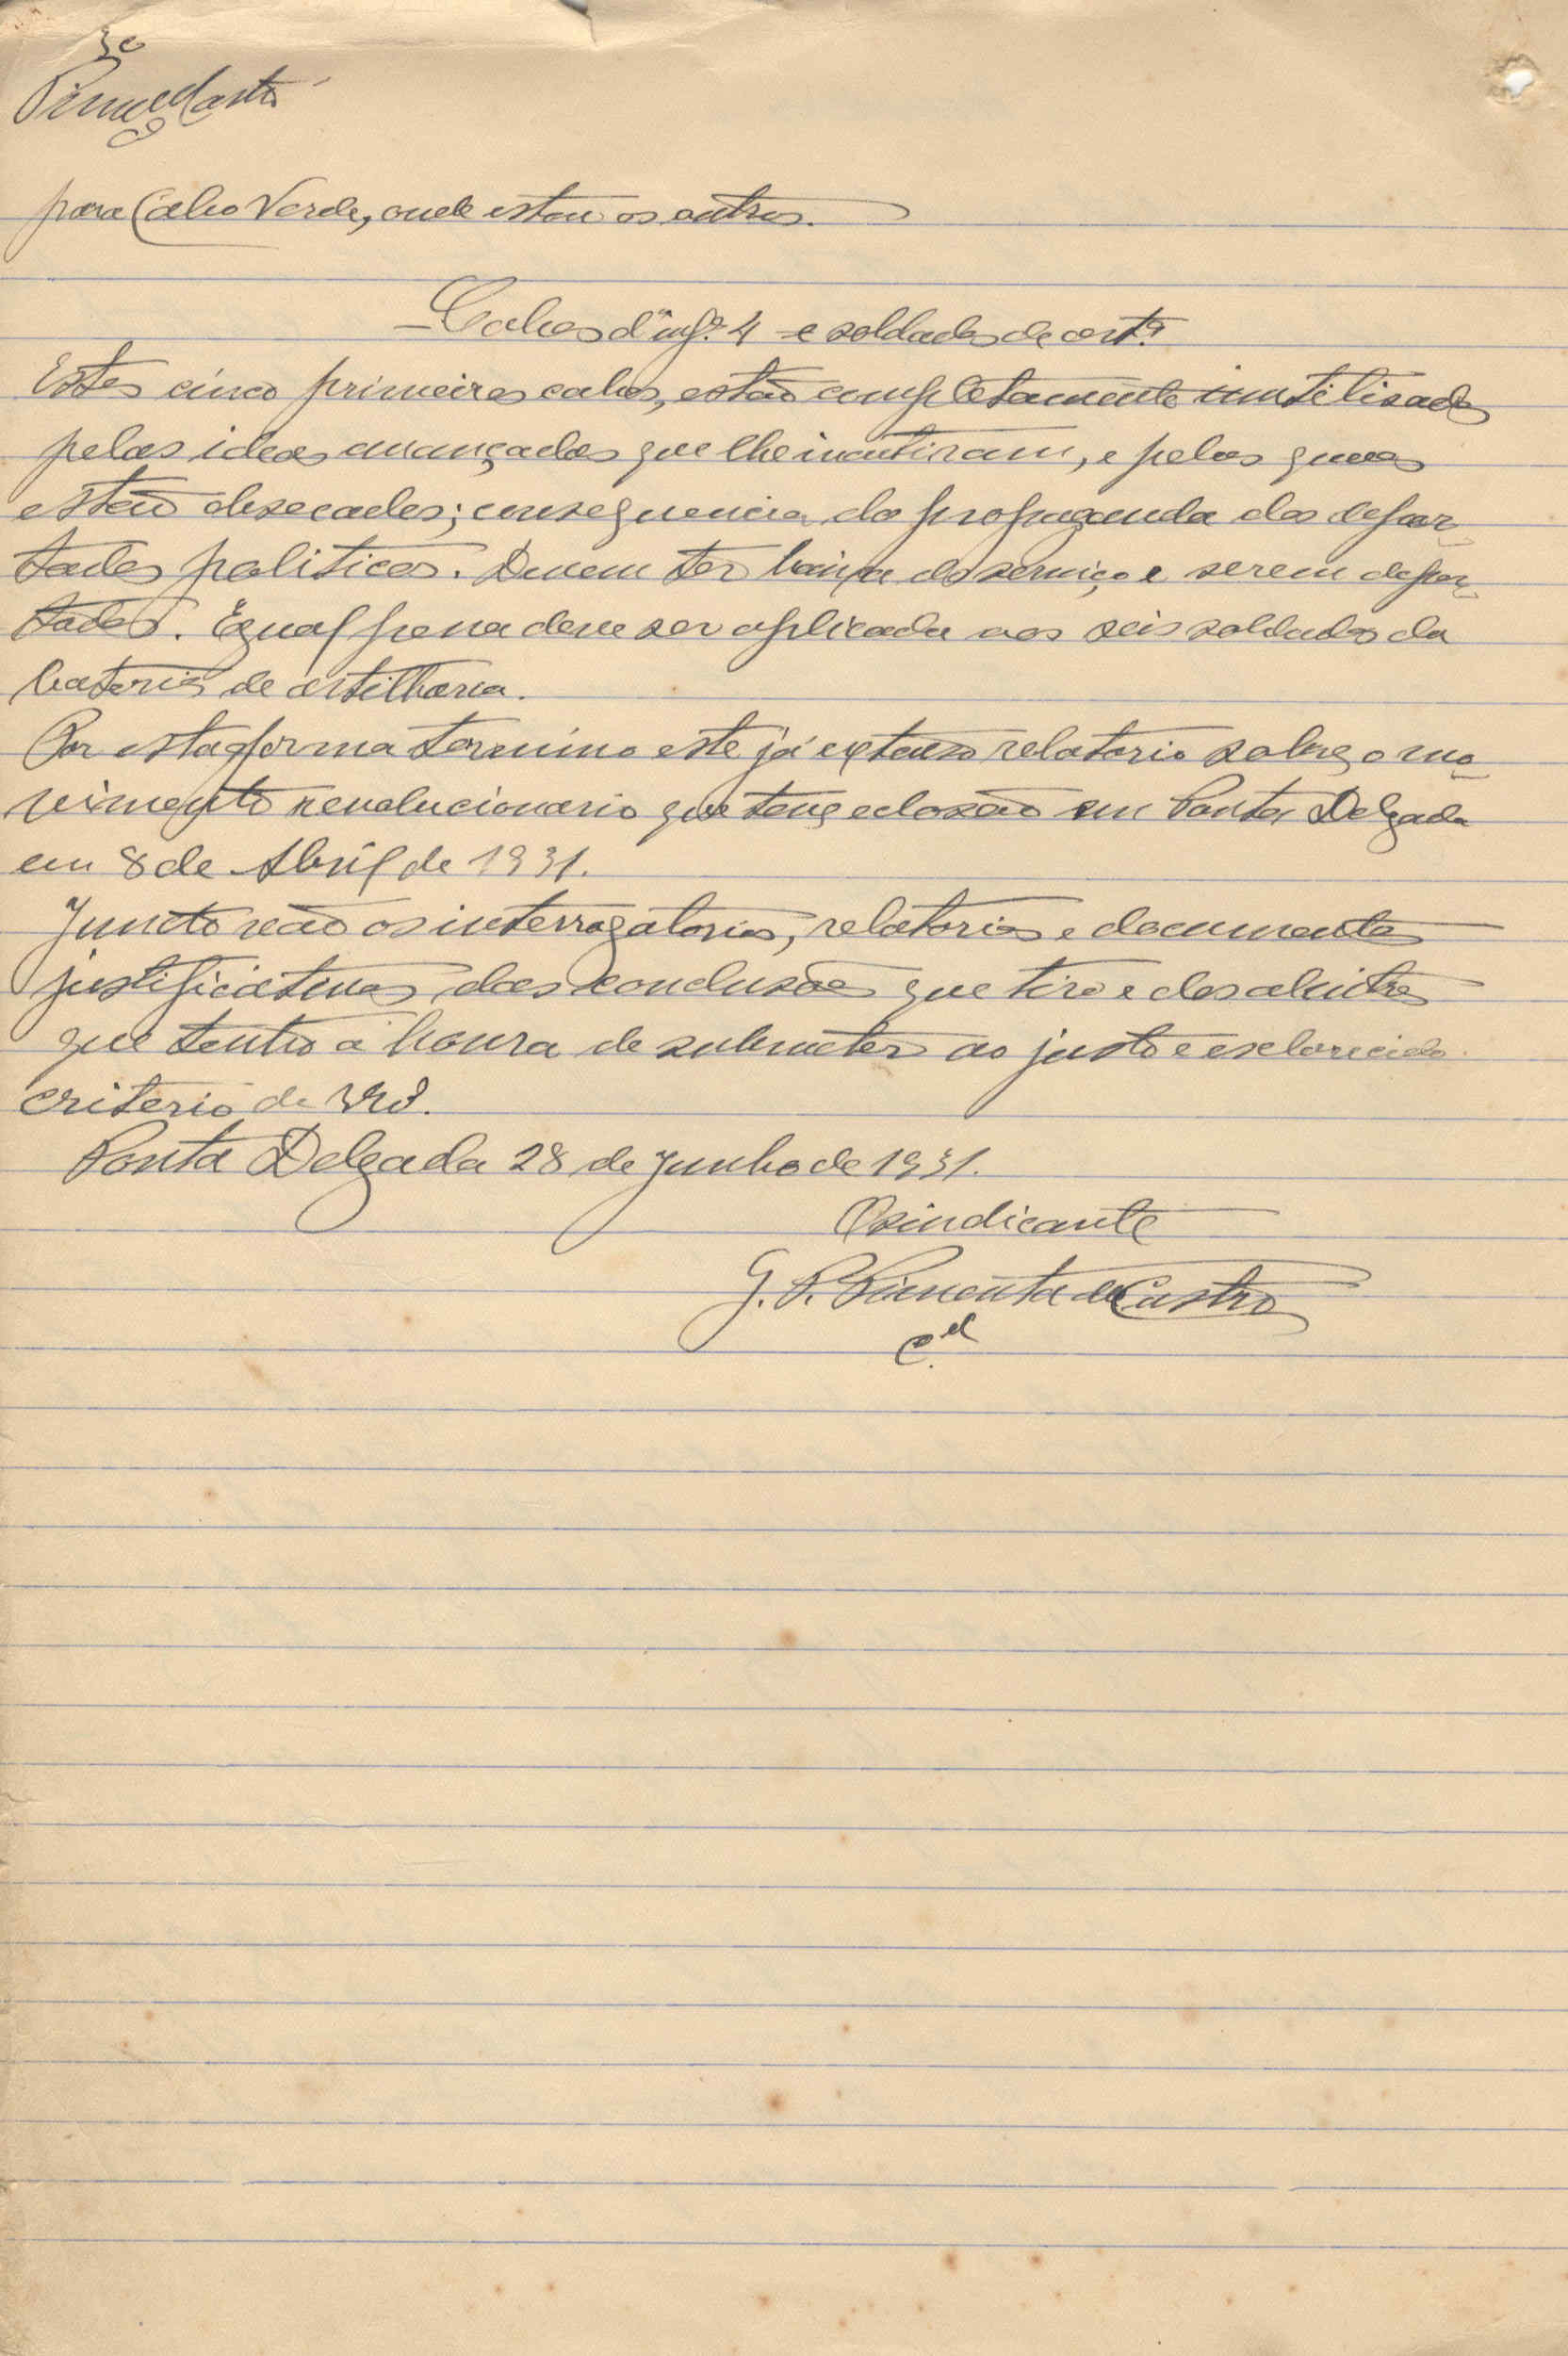 30
Pim Castro
para Cabo Verde, onde estão os outros.
— Cabos d'inf.ª 4 e soldados de art.ª
Estes cinco primeiros cabos, estão completamente inutilisados
pelas ideas avançadas que lhe incutiram, e pelas quaes
estão obsecados; consequencia da propaganda dos depor-
tados politicos. Devem ter baixa do serviço e serem depor-
tados. Egual pena deve ser aplicada aos seis soldados da
bateria de artilharia.
Por esta forma termino este já extenso relatorio sobre o mo-
vimento revolucionario que teve eclosão em Ponta Delgada
em 8 de Abril de 1931.
Juncto vão os interrogatorios, relatorios e documentos
justificativos das conclusões que tiro e dos alvitres
que tenho a honra de submeter ao justo e esclarecido
criterio de
Ponta Delgada 28 de Junho de 1931.
O sindicante
G. P. Pimenta de Castro
C.el